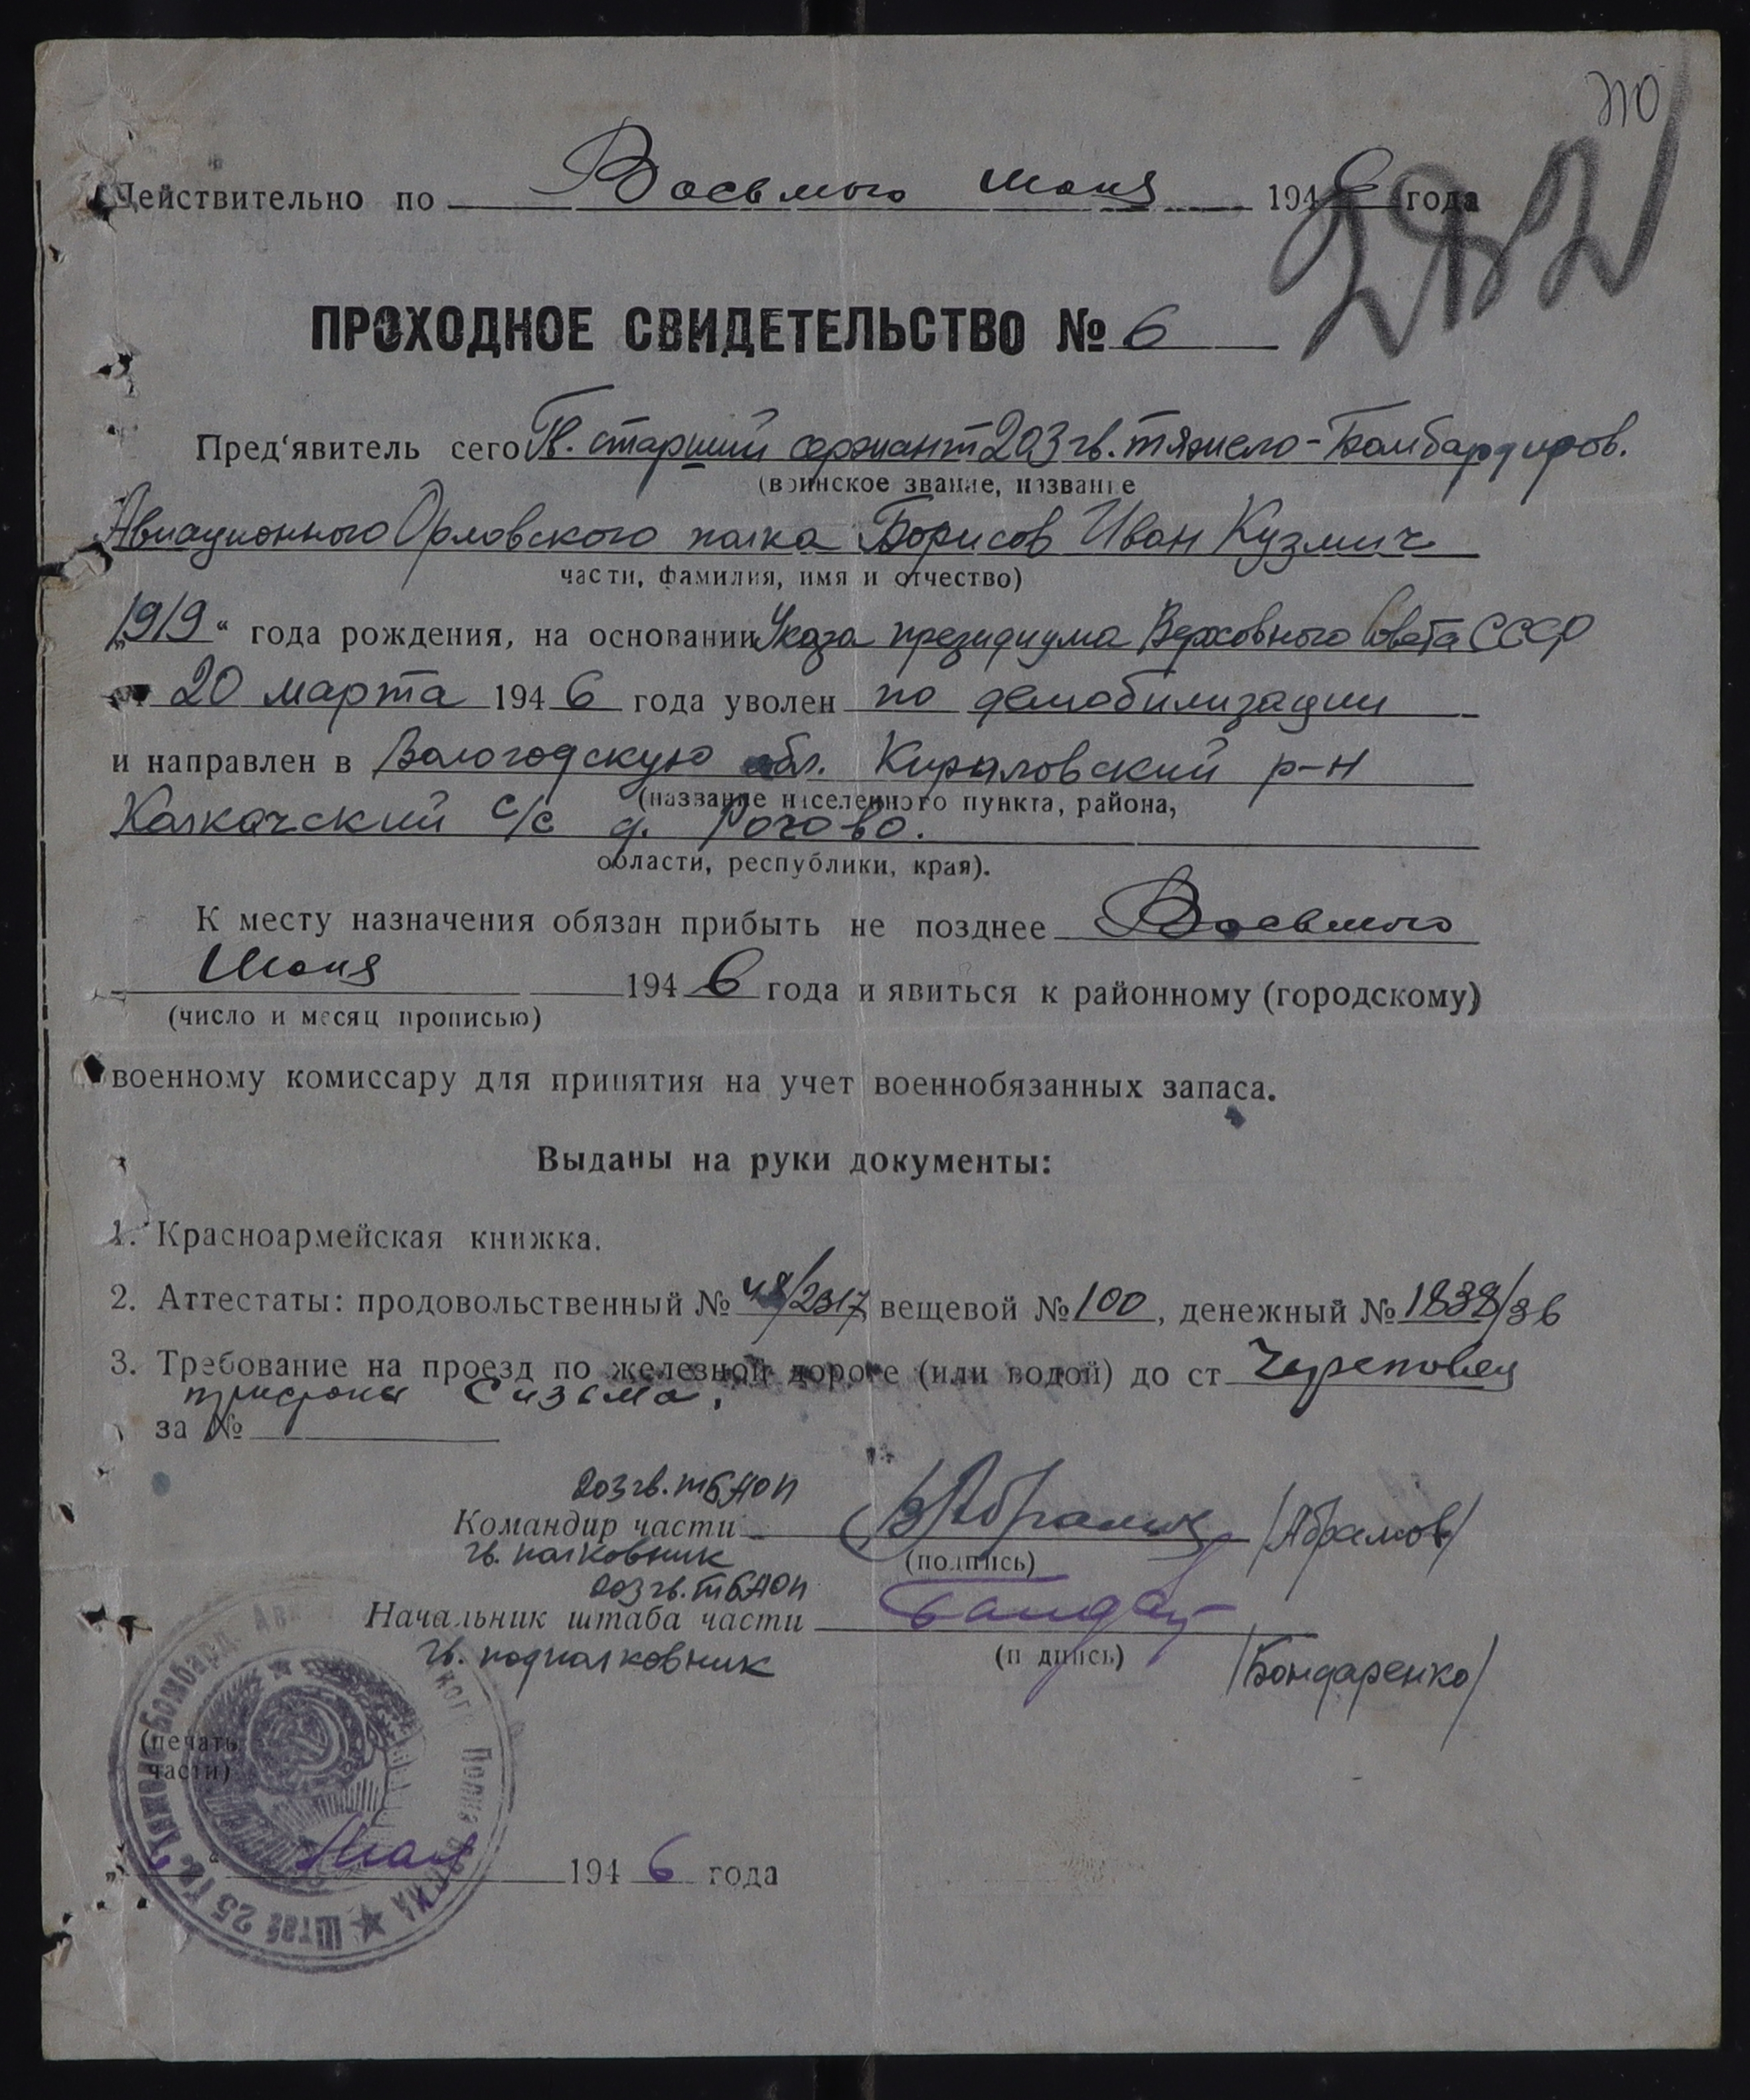 ПО
282
Действительно по Восьмого июня 1946 года
ПРОХОДНОЕ СВИДЕТЕЛЬСТВО № 6
Пред'явитель сего Гв. старший сержант 203 гв. тяжело-Бомбардиров.
(воинское звание, название
Авиационного Орловского полка Борисов Иван Кузмич
части, фамилия, имя и отчество)
„1919“ года рождения, на основании Указа президиума Верховного Совета СССР
от 20 марта 1946 года уволен по демобилизации
и направлен в Вологодскую обл. Кириловский р-н
(название населенного пункта, района,
Калкачский с/с д. Рогово.
области, республики, края).
К месту назначения обязан прибыть не позднее Восьмого
Июня 1946 года и явиться к районному (городскому)
(число и месяц прописью)
военному комиссару для принятия на учет военнобязанных запаса.
Выданы на руки документы:
1. Красноармейская книжка.
2. Аттестаты: продовольственный № 48/2317, вещевой № 100, денежный № 1838/36
3. Требование на проезд по железной дороге (или водой) до ст Череповец
Сизьма.
за №
203 гв. тБАОП
Командир части /Абрамов/
гв. полковник (подпись)
203 гв. тБАОП
Начальник штаба части
гв. подполковник (подпись) /Бондаренко/
(печать
части)
Мая 1946 года
Штаб 25 Гв. Тяжело-Бомбард. Полка